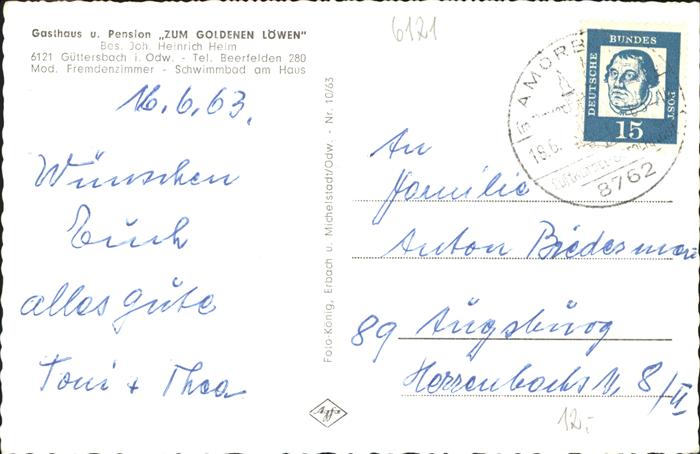 Gasthaus u. Pension „ZUM GOLDENEN LÖWEN"
Bes. Joh. Heinrich Heim
6121 Güttersbach i. Odw. - Tel. Beerfelden 280
Mod. Fremdenzimmer - Schwimmbad am Haus
16.6.63.
Wünschen
Euch
alles gute
Toni + Thea
Foto-König, Erbach u. Michelstadt/Odw. - Nr. 10/63
Agfa
6121
AMORB
18.6.
8762
DEUTSCHE
BUNDES
POST
15
An
Familie
Anton
89 Augsburg
8/II
12.-